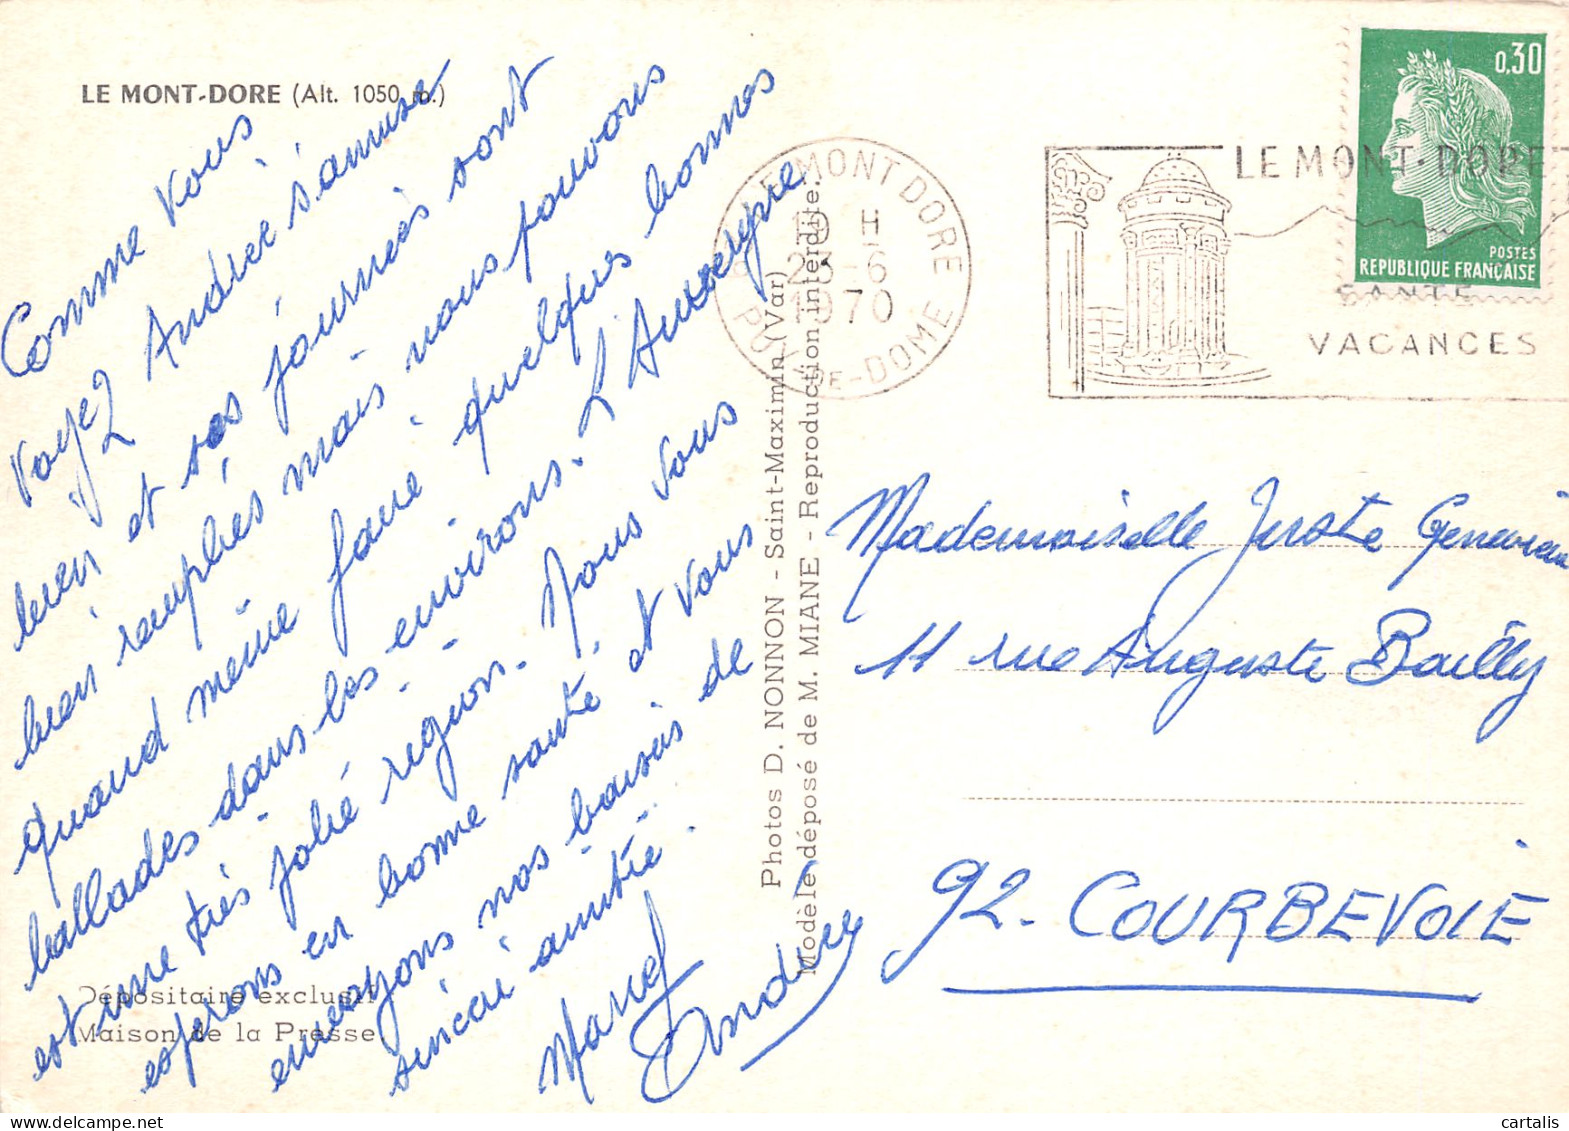 LE MONT-DORE (Alt. 1050 m.)
Comme vous
voyez Andrée s'amuse
bien et ses journées sont
bien remplies mais nous pouvons
quand même faire quelques bonnes
ballades dans les environs. L'Auvergne
est une très jolie region. Nous vous
esperons en bonne santé et vous
envoyons nos baisers de
sincère amitié.
Marcel
Andrée
Dépositaire exclusif
Maison de la Presse
Photos D. NONNON - Saint-Maximin (Var)
Modèle déposé de M. MIANE - Reproduction interdite.
LE MONT DORE
19 H
23-6
1970
PUY-DE-DOME
LE MONT-DORE
SANTE
VACANCES
0,30
POSTES
REPUBLIQUE FRANÇAISE
Mademoiselle Juste Geneviève
11 rue Auguste Bailly
92. COURBEVOIE
cartalis